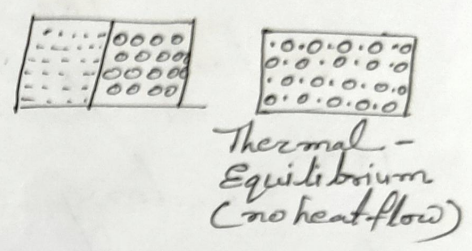 Thermal -
Equilibrium
(no heat flow)